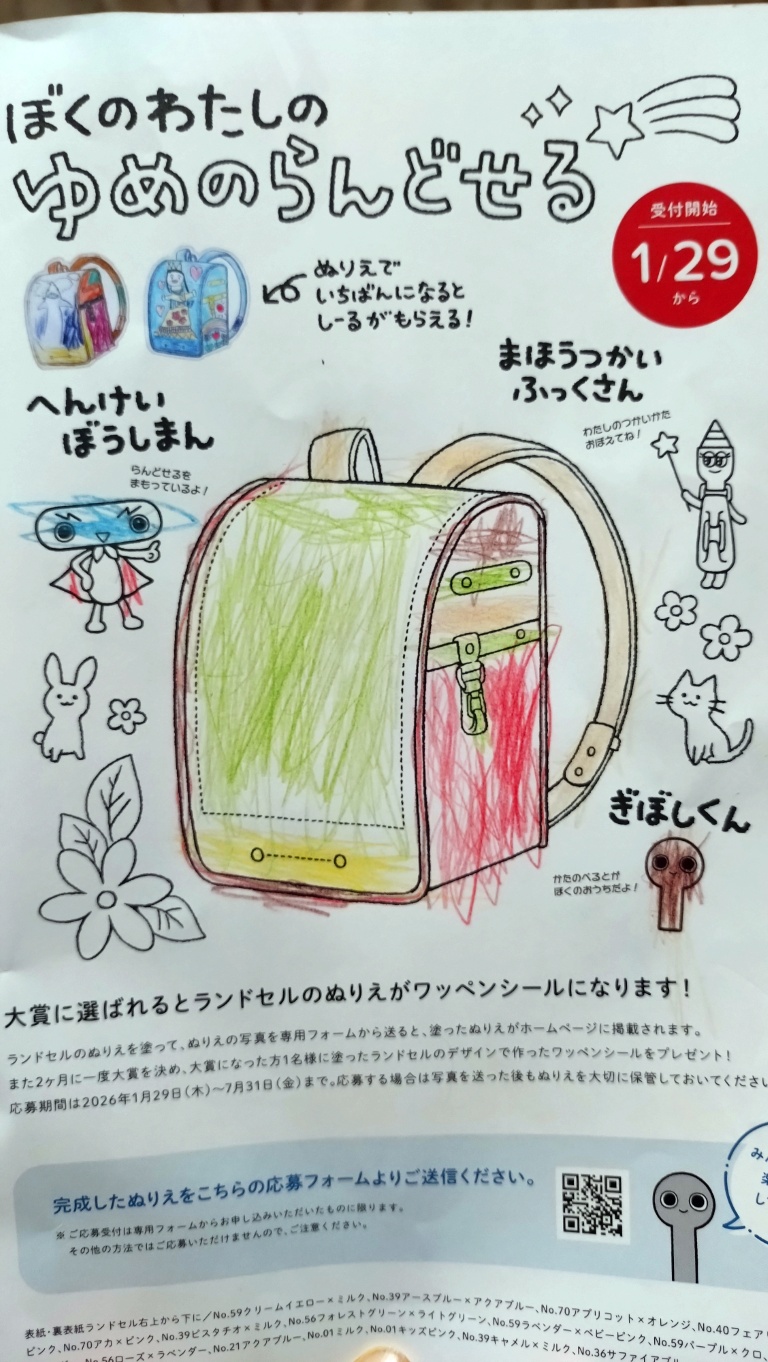 ぼくのわたしの
ゆめのらんどせる
受付開始
1/29
から
ぬりえで
いちばんになると
しーるがもらえる!
まほうつかい
ふっくさん
わたしのつかいかた
おぼえてね!
へんけい
ぼうしまん
らんどせるを
まもっているよ!
ぎぼしくん
かたのべるとが
ぼくのおうちだよ!
大賞に選ばれるとランドセルのぬりえがワッペンシールになります!
ランドセルのぬりえを塗って、ぬりえの写真を専用フォームから送ると、塗ったぬりえがホームページに掲載されます。
また2ヶ月に一度大賞を決め、大賞になった方1名様に塗ったランドセルのデザインで作ったワッペンシールをプレゼント!
応募期間は2026年1月29日(木)〜7月31日(金)まで。応募する場合は写真を送った後もぬりえを大切に保管しておいてくださ
完成したぬりえをこちらの応募フォームよりご送信ください。
※ご応募受付は専用フォームからお申し込みいただいたものに限ります。
その他の方法ではご応募いただけませんので、ご注意ください。
み
し
表紙・裏表紙ランドセル右上から下に/No.59クリームイエロー×ミルク、No.39アースブルー×アクアブルー、No.70アプリコット×オレンジ、No.40フェア
ピンク、No.70アカ×ピンク、No.39ピスタチオ×ミルク、No.56フォレストグリーン×ライトグリーン、No.59ラベンダー×ベビーピンク、No.59パープル×クロ、
No.56ローズ×ラベンダー、No.21アクアブルー、No.01ミルク、No.01キッズピンク、No.39キャメル×ミルク、No.36サファイアブル